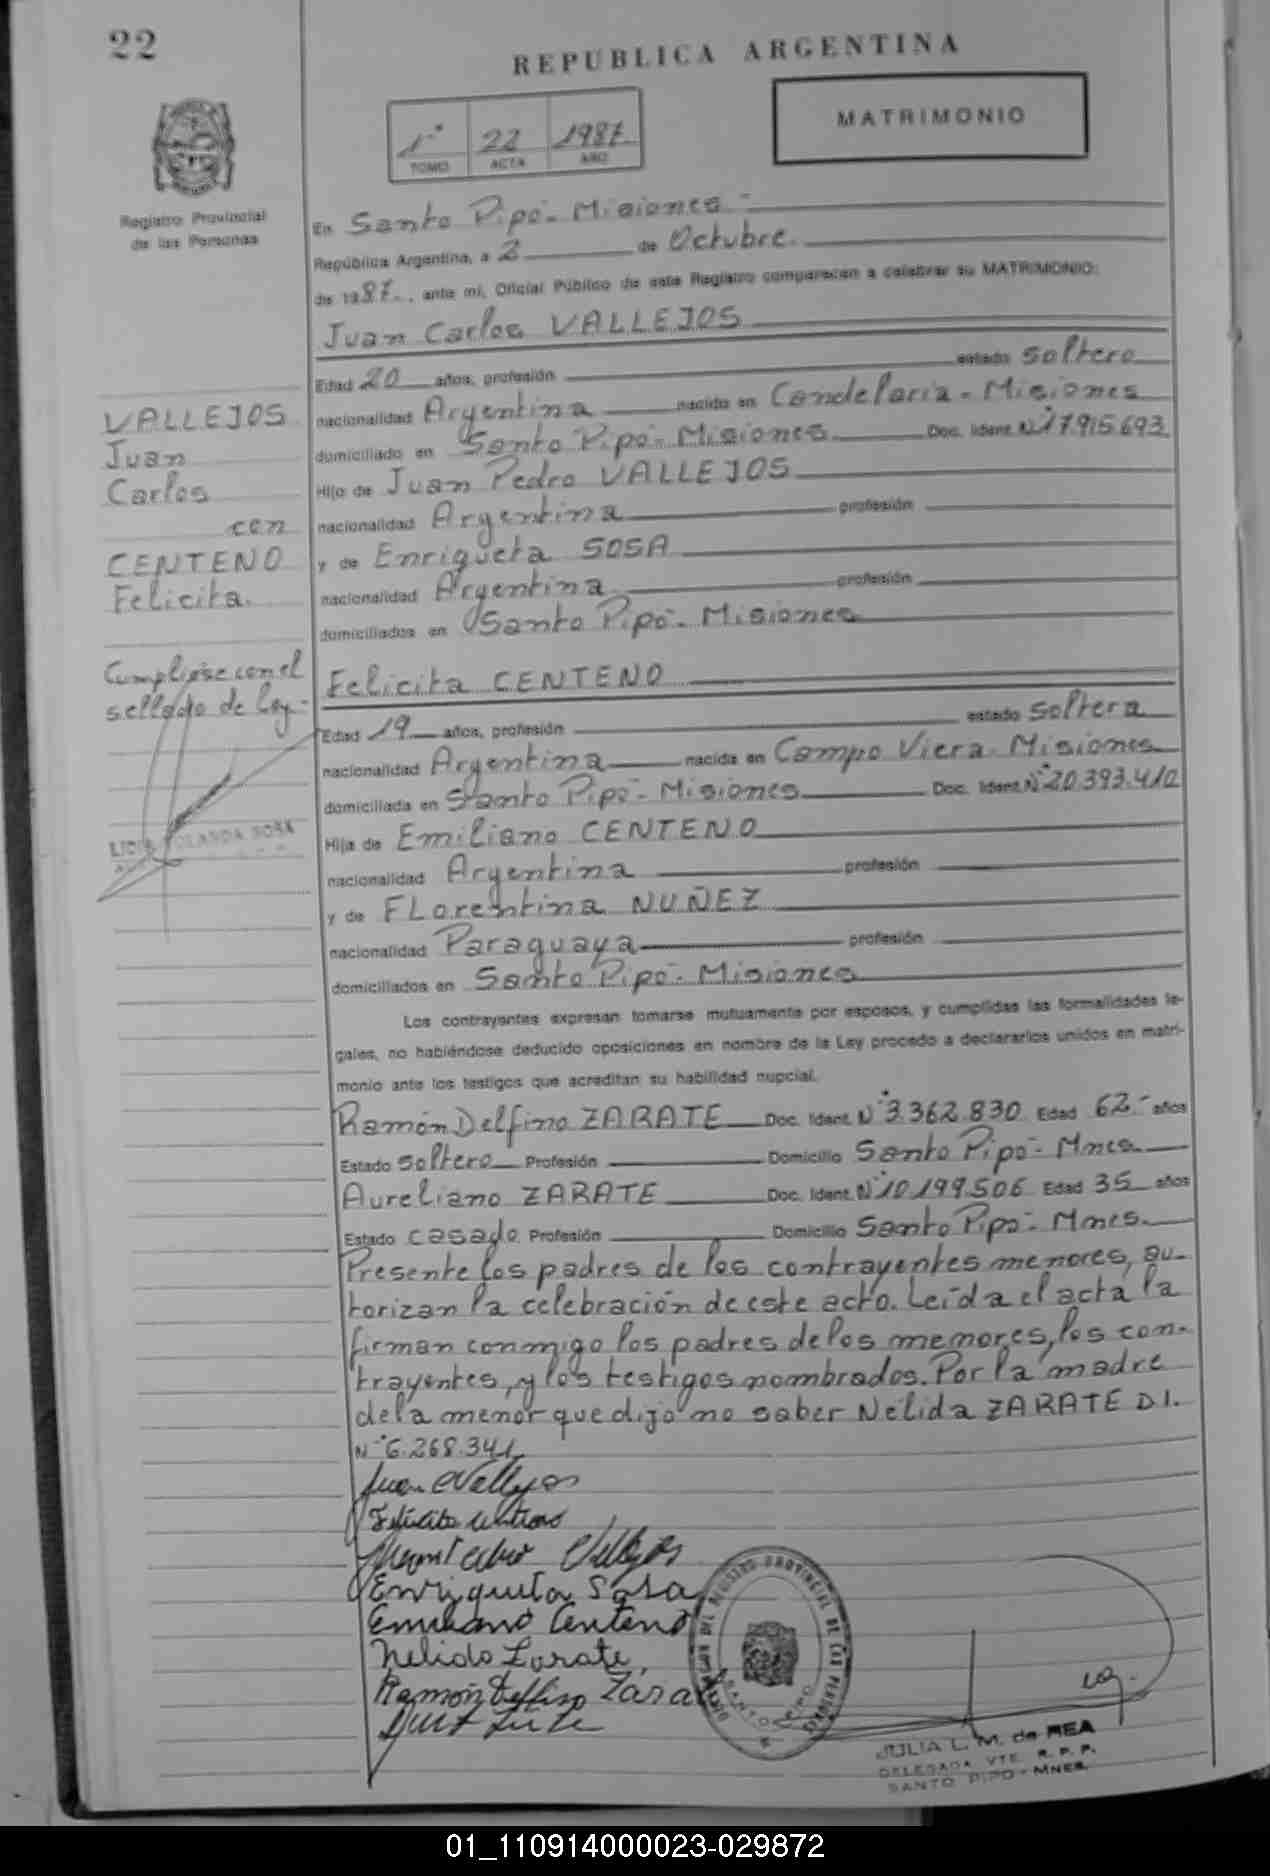 22
REPUBLICA ARGENTINA
1° 22 1987.
TOMO ACTA AÑO
MATRIMONIO
Registro Provincial
de las Personas
En Santo Pipó - Misiones -
República Argentina, a 2 de Octubre.
de 1987., ante mí, Oficial Público de este Registro comparecen a celebrar su MATRIMONIO:
Juan Carlos VALLEJOS
Edad 20 años, profesión estado soltero
nacionalidad Argentina nacido en Candelaria - Misiones
domiciliado en Santo Pipó - Misiones Doc. Ident. N° 17.915.693
Hijo de Juan Pedro VALLEJOS
nacionalidad Argentina profesión
y de Enriqueta SOSA
nacionalidad Argentina profesión
domiciliados en Santo Pipó - Misiones
VALLEJOS
Juan
Carlos
con
CENTENO
Felicita.
Cumplióse con el
sellado de Ley -
LIDIA YOLANDA SOSA
Felicita CENTENO
Edad 19 años, profesión estado soltera
nacionalidad Argentina nacida en Campo Viera - Misiones
domiciliada en Santo Pipó - Misiones Doc. Ident. N° 20.393.410
Hija de Emiliano CENTENO
nacionalidad Argentina profesión
y de FLorentina NUÑEZ
nacionalidad Paraguaya profesión
domiciliados en Santo Pipó - Misiones
Los contrayentes expresan tomarse mutuamente por esposos, y cumplidas las formalidades le-
gales, no habiéndose deducido oposiciones en nombre de la Ley procedo a declararlos unidos en matri-
monio ante los testigos que acreditan su habilidad nupcial.
Ramón Delfino ZARATE Doc. Ident. N° 3.362.830 Edad 62 - años
Estado soltero Profesión Domicilio Santo Pipó - Mnes.
Aureliano ZARATE Doc. Ident. N° 10.199.506 Edad 35 años
Estado casado. Profesión Domicilio Santo Pipó - Mnes.
Presente los padres de los contrayentes menores, au-
torizan la celebración de este acto. Leída el acta la
firman conmigo los padres de los menores, los con-
trayentes, y los testigos nombrados. Por la madre
de la menor que dijo no saber Nélida ZARATE D.I.
N° 6.268.341
Juan C Vallejos
Felicita Centeno
Juan Pedro Vallejos
Enriqueta Sosa
Emiliano Centeno
Nelida Zarate
Ramón Delfino Zarate
REGISTRO PROVINCIAL DE LAS PERSONAS
SANTO PIPO
JULIA L. M. de REA
DELEGADA VTE. R. P. P.
SANTO PIPO - MNES.
01_110914000023-029872